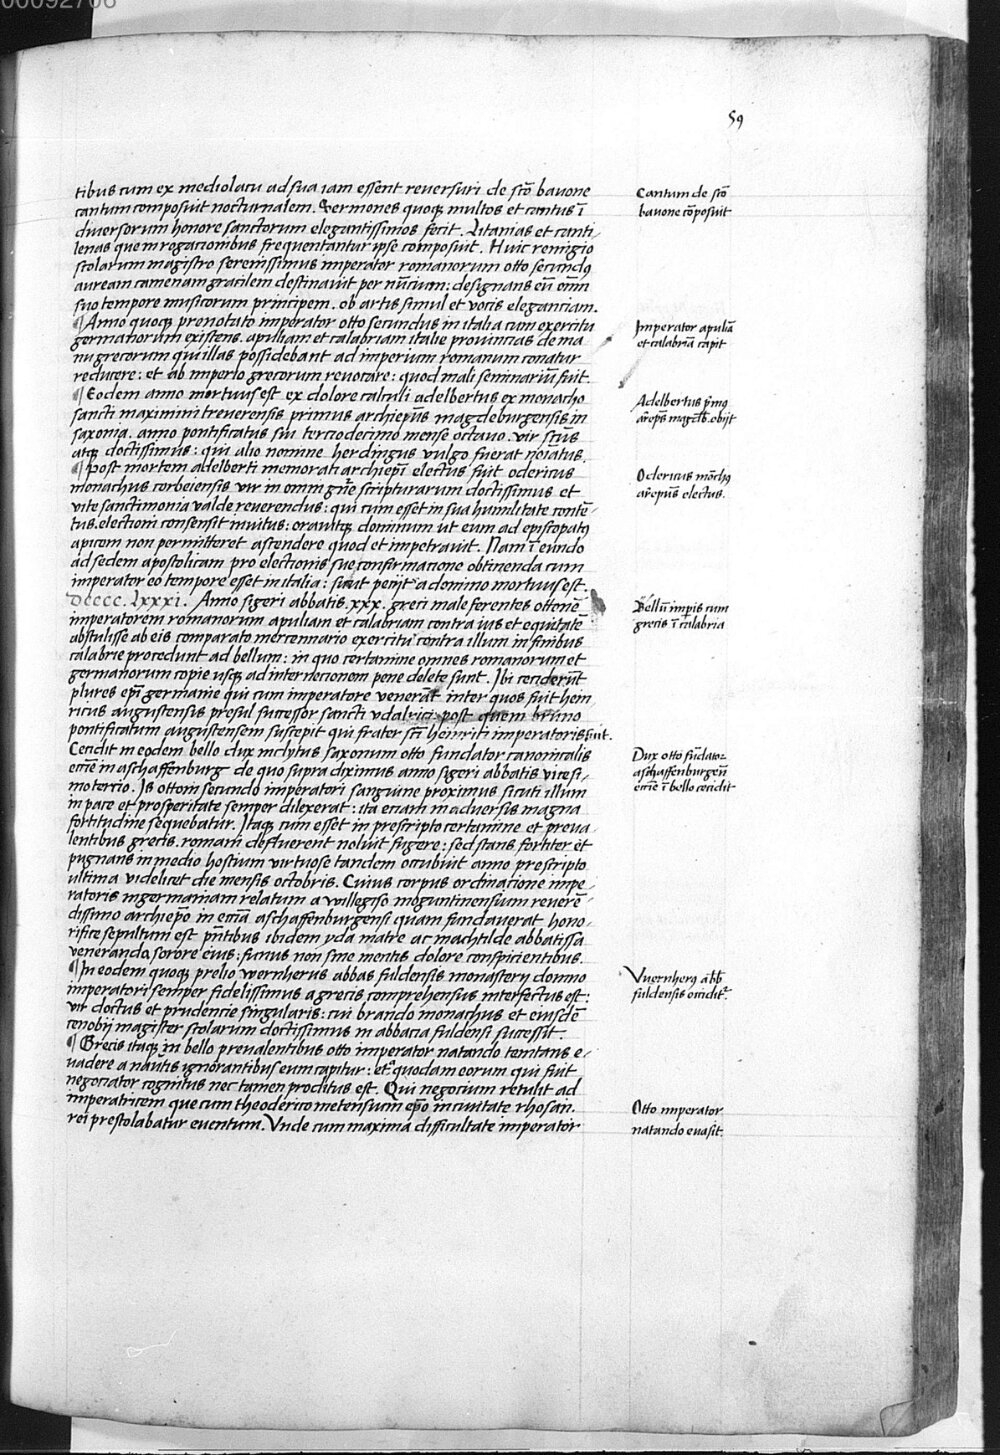 00092706
59
tibus cum ex mediolacu ad sua iam essent reversuri de scō bavone
cantum composuit nocturnalem. Sermones quoqȝ multos et cantus ī
diversorum honore sanctorum elegantissimos fecit. Litanias et canti-
lenas que in rogacionibus frequentantur ipse composuit. Huic remigio
scolarum magistro serenissimus imperator romanorum otto secundꝰ
auream camenam gracilem destinavit per nūcium: designans eū omī
suo tempore musicorum principem. ob artis simul et vocis eleganciam.
¶ Anno quoqȝ prenotato imperator otto secundus in italia cum exercitu
germanorum existens. apuliam et calabriam italie provincias de ma
nu grecorum qui illas possidebant ad imperium romanum conatur
reducere: et ab imperio grecorum revocare: quod mali seminariū fuit.
¶ Eodem anno mortuus est ex dolore calculi adelbertus ex monacho
sancti maximini treverensis primus archiepūs magdeburgensis in
saxonia. anno pontificatus sui terciodecimo mense octavo. vir scūs
atqȝ doctissimus: qui alio nomine herdingus vulgo fuerat noīatus.
¶ Post mortem adelberti memorati archiepī electus fuit odericus
monachus corbeiensis vir in omni gn̄e scripturarum doctissimus et
vite sanctimonia valde reverendus: qui cum esset in sua humilitate contē-
tus. electioni consensit invitus: oravitqȝ dominum ut eum ad episcopatꝰ
apicem non permitteret ascendere quod et impetravit. Nam ī eundo
ad sedem apostolicam pro electionis sue confirmacione obtinenda cum
imperator eo tempore esset in italia: sicut pecijt a domino mortuus est.
DCCCC.lxxxi. Anno sigeri abbatis .xxx. greci male ferentes ottonē
imperatorem romanorum apuliam et calabriam contra ius et equitatē
abstulisse ab eis comparato mercennario exercitu contra illum in finibus
calabrie procedunt ad bellum: in quo certamine omnes romanorum et
germanorum copie usqȝ ad internecionem pene delete sunt. Ibi ceciderūt
plures epī germanie qui cum imperatore venerāt inter quos fuit hein
ricus augustensis presul successor sancti udalrici: post quem bruno
pontificatum augustensem suscepit qui frater scī heinrici imperatoris fuit.
Cecidit in eodem bello dux inclytus saxonum otto fundator canonicalis
eccīe in aschaffenburg de quo supra diximus anno sigeri abbatis vicesi-
mo tercio. Is ottoni secundo imperatori sanguine proximus sicuti illum
in pace et prosperitate semper dilexerat: ita eciam in adversis magna
fortitudine sequebatur. Itaqȝ cum esset in prescripto certamine et preva-
lentibus grecis. romani defluerent noluit fugere: sed stans fortiter et
pugnans in medio hostium virtuose tandem occubuit anno prescripto
ultima videlicet die mensis octobris. Cuius corpus ordinacione impe-
ratoris in germaniam relatum a willegiso moguntinensium reverē-
dissimo archiepō in ecciā aschaffenburgensi quam fundaverat hono-
rifice sepultum est pn̄tibus ibidem yda matre ac machtilde abbatissa
veneranda sorore eius: funus non sine mentis dolore conspicientibus.
¶ In eodem quoqȝ prelio wernherus abbas fuldensis monasterij domno
imperatori semper fidelissimus a grecis comprehensus interfectus est:
vir doctus et prudencie singularis: cui brando monachus et eiusdē
cenobij magister scolarum doctissimus in abbacia fuldensi successit.
¶ Grecis itaqȝ in bello prevalentibus otto imperator natando temtans e-
vadere a nautis ignorantibus eum capitur: et a quodam eorum qui fuit
negociator cognitus nec tamen proditus est. Qui negocium retulit ad
imperatricem que cum theoderico metensium epō in civitate rhosan.
rei prestolabatur eventum. Unde cum maxima difficultate imperator
Cantum de scō
bavone cōposuit
Imperator apuliā
et calabriā cepit
Adelbertus p̄mꝰ
arēpūs magdb. obijt
Odericus mōchꝰ
arēpūs electus.
Bellū impīs cum
grecis ī calabria
Dux otto fūdator
aschaffenburgeñ
eccīe ī bello cecidit
Wernherꝰ abb̄
fuldensis occiditr.
Otto imperator
natando evasit.